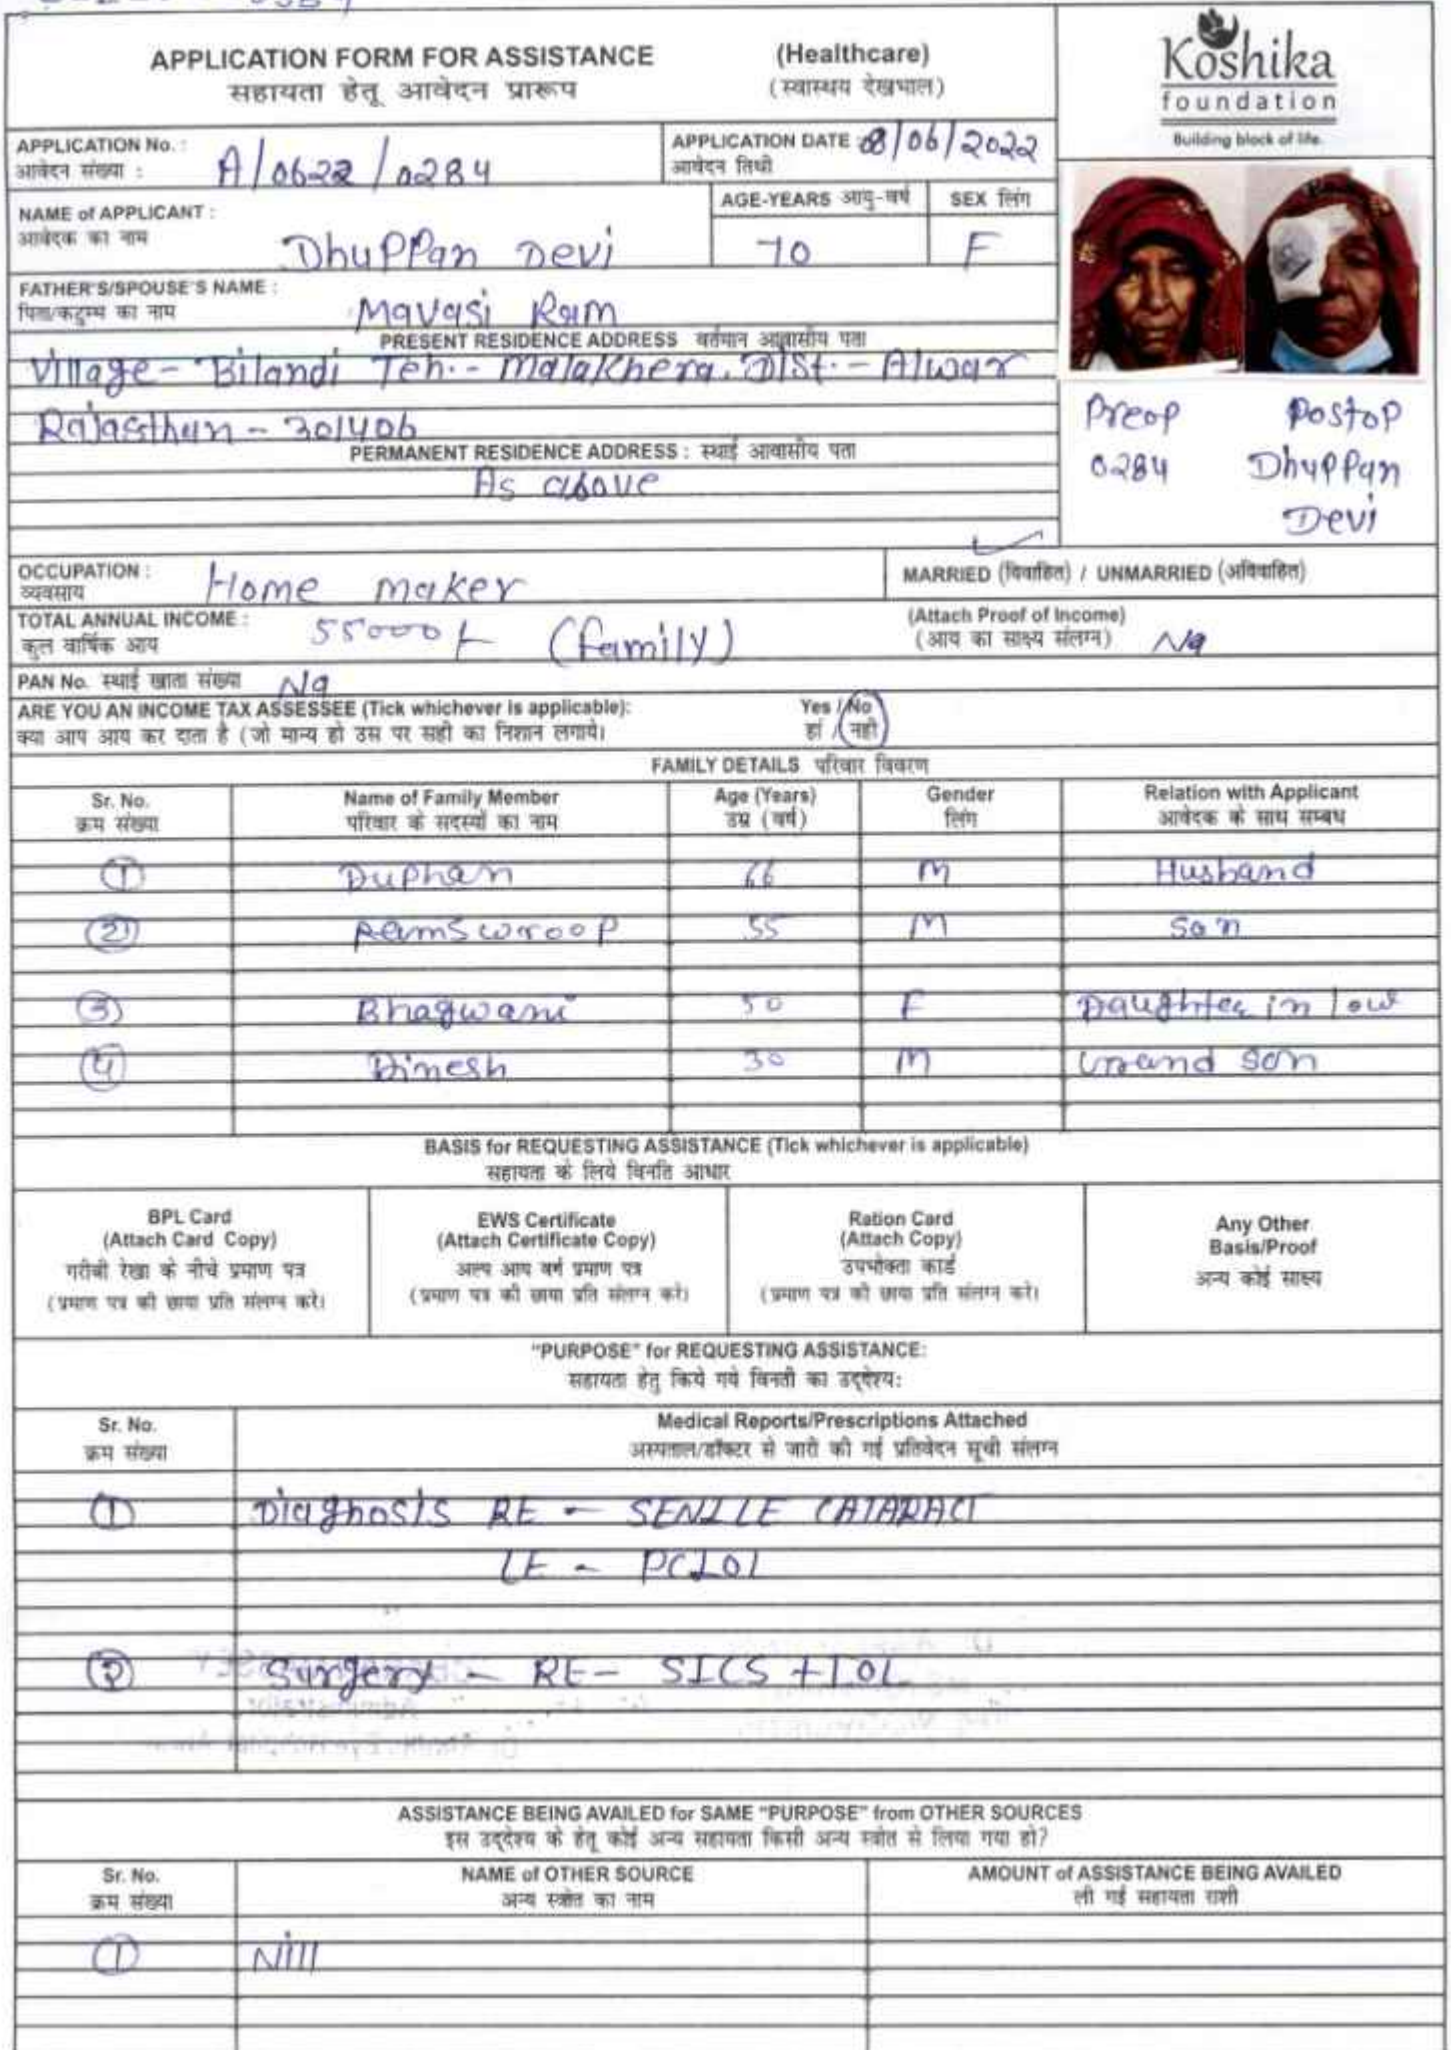 APPLICATION FORM FOR ASSISTANCE (Healthcare)
सहायता हेतू आवेदन प्रारूप (स्वास्थय देखभाल)
Koshika
foundation
Building block of life.
APPLICATION No. : A/0622/0284
आवेदन संख्या :
APPLICATION DATE 08/06/2022
आवेदन तिथी
NAME of APPLICANT : Dhuppan Devi
आवेदक का नाम
AGE-YEARS आयु-वर्ष 70
SEX लिंग F
FATHER'S/SPOUSE'S NAME : Mavasi Ram
पिता/कटुम्ब का नाम
PRESENT RESIDENCE ADDRESS वर्तमान आवासीय पता
Village- Bilandi Teh.- Malakhera. Dist.- Alwar
Rajasthan - 301406
PERMANENT RESIDENCE ADDRESS : स्थाई आवासीय पता
As above
Preop Postop
0284 Dhuppan
Devi
OCCUPATION : Home maker
व्यवसाय
MARRIED (विवाहित) / UNMARRIED (अविवाहित)
TOTAL ANNUAL INCOME : 55000/- (family)
कुल वार्षिक आय
(Attach Proof of Income)
(आय का साक्ष्य संलग्न) Na
PAN No. स्थाई खाता संख्या Na
ARE YOU AN INCOME TAX ASSESSEE (Tick whichever is applicable): Yes / No
क्या आप आय कर दाता है (जो मान्य हो उस पर सही का निशान लगाये। हां / नही
FAMILY DETAILS परिवार विवरण
Sr. No. Name of Family Member Age (Years) Gender Relation with Applicant
क्रम संख्या परिवार के सदस्यों का नाम उम्र (वर्ष) लिंग आवेदक के साथ सम्बध
1 Duphan 66 M Husband
2 Ramswroop 55 M Son
3 Bhagwani 50 F Daughter in low
4 Dinesh 30 M Grand son
BASIS for REQUESTING ASSISTANCE (Tick whichever is applicable)
सहायता के लिये विनति आधार
BPL Card
(Attach Card Copy)
गरीबी रेखा के नीचे प्रमाण पत्र
(प्रमाण पत्र की छाया प्रति संलग्न करे।
EWS Certificate
(Attach Certificate Copy)
अल्प आय वर्ग प्रमाण पत्र
(प्रमाण पत्र की छाया प्रति संलग्न करे।
Ration Card
(Attach Copy)
उपभोक्ता कार्ड
(प्रमाण पत्र की छाया प्रति संलग्न करे।
Any Other
Basis/Proof
अन्य कोई साक्ष्य
"PURPOSE" for REQUESTING ASSISTANCE:
सहायता हेतु किये गये विनती का उद्देश्य:
Sr. No. Medical Reports/Prescriptions Attached
क्रम संख्या अस्पताल/डॉक्टर से जारी की गई प्रतिवेदन सूची संलग्न
1 Diagnosis RE - SENILE CATARACT
LE - PCIOL
2 Surgery - RE - SICS + IOL
ASSISTANCE BEING AVAILED for SAME "PURPOSE" from OTHER SOURCES
इस उद्देश्य के हेतू कोई अन्य सहायता किसी अन्य स्त्रोत से लिया गया हो?
Sr. No. NAME of OTHER SOURCE AMOUNT of ASSISTANCE BEING AVAILED
क्रम संख्या अन्य स्त्रोत का नाम ली गई सहायता राशी
1 Nill